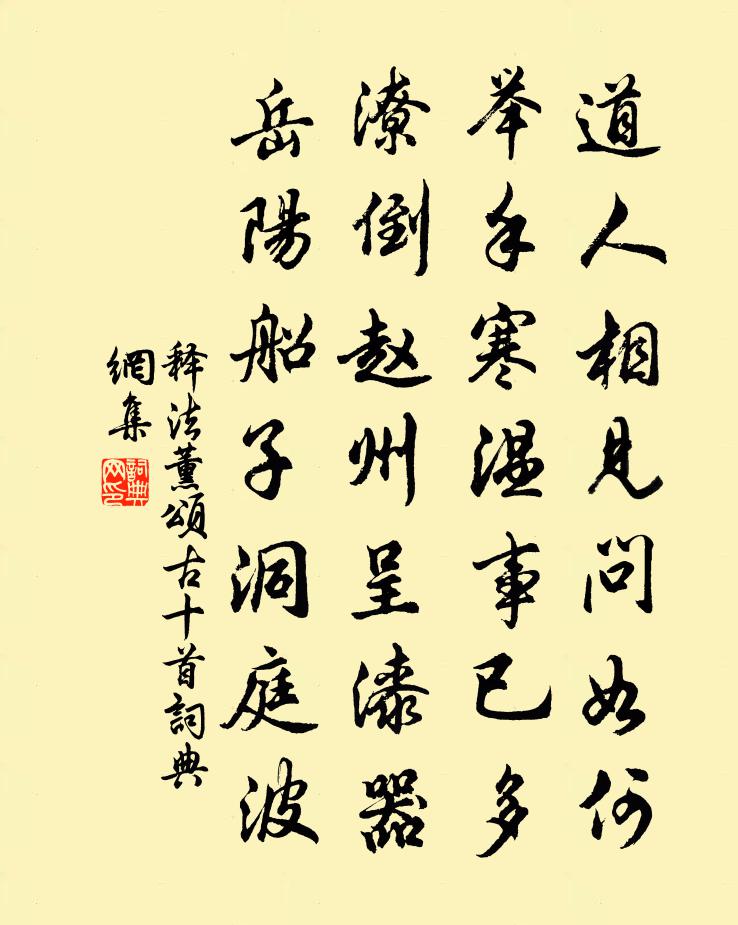 道人相见问如何
举手寒温事已多
潦倒赵州呈漆器
岳陽船子洞庭波
释法薰頌古十首詞典
網集
詞典网印